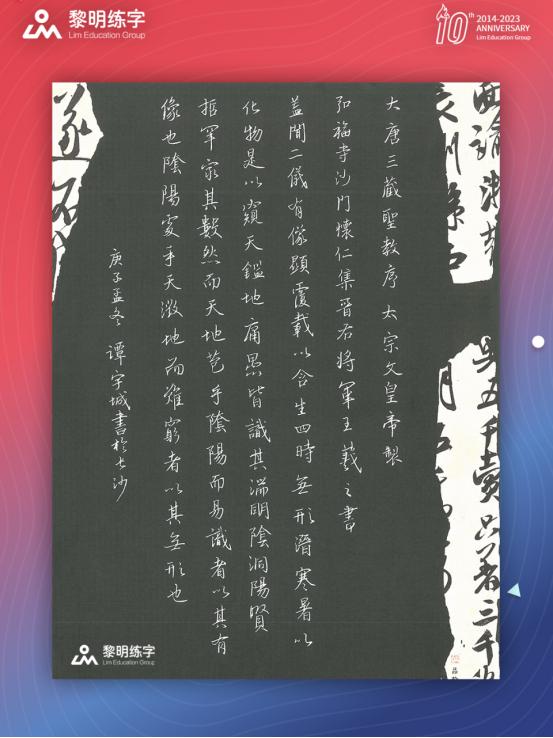 黎明练字
Lim Education Group
10th
2014-2023
ANNIVERSARY
Lim Education Group
大唐三藏聖教序 太宗文皇帝製
弘福寺沙門懷仁集晉右將軍王羲之書
蓋聞二儀有像顯覆載以含生四時無形潛寒暑以
化物是以窺天鑑地庸愚皆識其端明陰洞陽賢
哲罕窮其數然而天地苞乎陰陽而易識者以其有
像也陰陽處乎天地而難窮者以其無形也
庚子孟冬 譚宇城書於長沙
西論
五千
只著三千
黎明练字
Lim Education Group